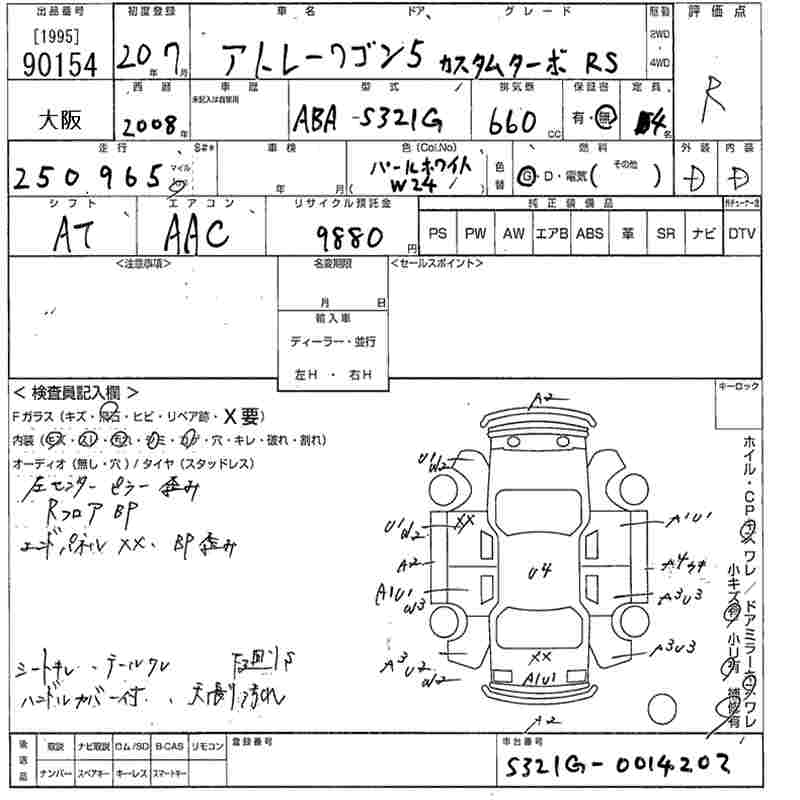 出品番号 初度登録 車名 ドア グレード 駆動 評価点
[1995] 90154 20年 7月 アトレーワゴン 5 カスタムターボ RS 2WD・4WD R
西暦 車歴 型式 排気量 保証書 定員
大阪 2008年 未記入は自家用 ABA-S321G 660cc 有・無 4名
走行 S#* 車検 色(Col.No) 色替 燃料 外装 内装
250965 マイル 年 月 パールホワイト (W24) G・D・電気( その他 ) D D
シフト エアコン リサイクル預託金 純正装備品
AT AAC 9880円 PS PW AW エアB ABS 革 SR ナビ DTV
<注意事項> 名変期限 <セールスポイント>
月 日
輸入車
ディーラー・並行
左H・右H
<検査員記入欄> キーロック
Fガラス(キズ・飛石・ヒビ・リペア跡・X要)
内装(キズ・スレ・汚れ・シミ・コゲ・穴・キレ・破れ・割れ)
オーディオ(無し・穴)/タイヤ(スタッドレス)
左センターピラー歪み
Rフロア BP
エンドパネル XX、BP歪み
シートキレ、テールワレ 下廻りS
ハンドルカバー付、天張り汚れ
A2
U1 W2
U1 W2 XX A1U1
A2 U4 A4
A1U1 W3 A3U3
A3U2 W2 XX A3U3
A1U1
A2
ホイル・CPキズワレ/ドアミラーキズワレ
小キズ有 小凹有 補修有
後送品 取説 ナビ取説 ロム/SD B-CAS リモコン 登録番号 車台番号
ナンバー スペアキー キーレス スマートキー S321G-0014202